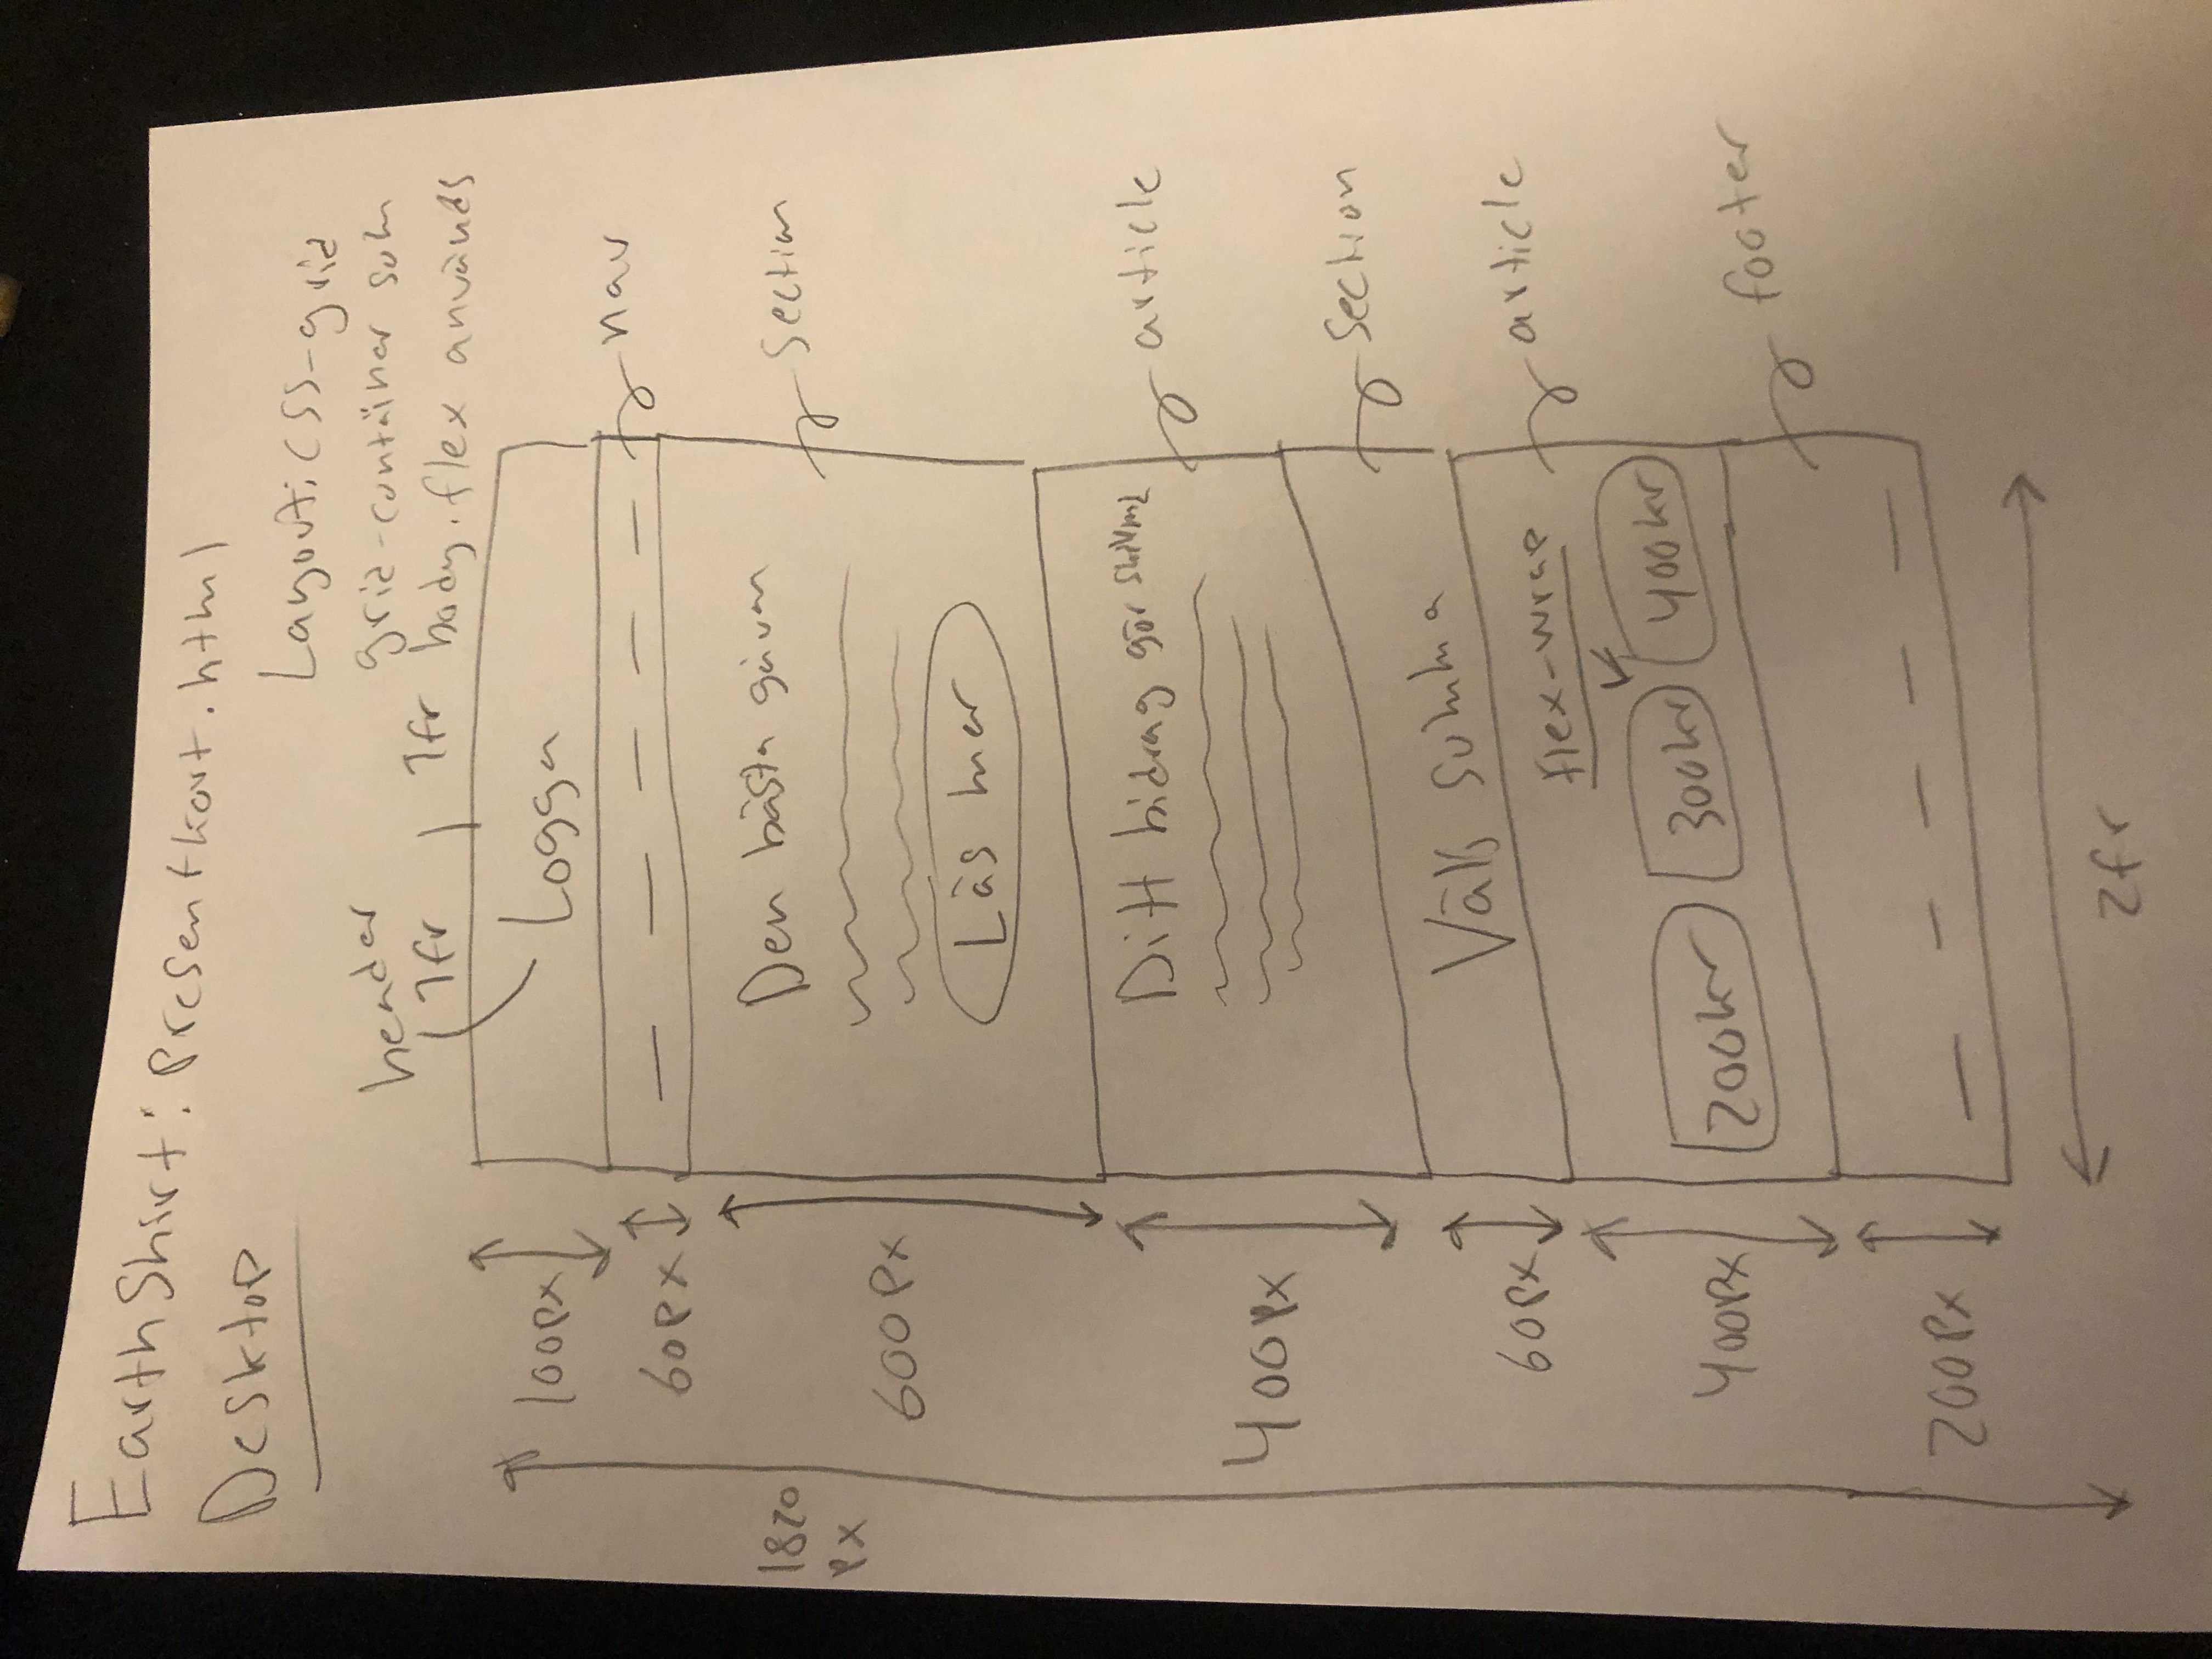 EarthShirt: Presentkort.html
Desktop
Layout: CSS-grid
grid-container som
body. flex används
header
1fr 1fr
100px
Logga
nav
60px
1820
px
Den bästa gåvan
section
600px
Läs mer
Ditt bidrag gör skillnad
article
400px
section
Välj summa
60px
article
flex-wrap
200kr 300kr 400kr
400px
footer
200px
2fr